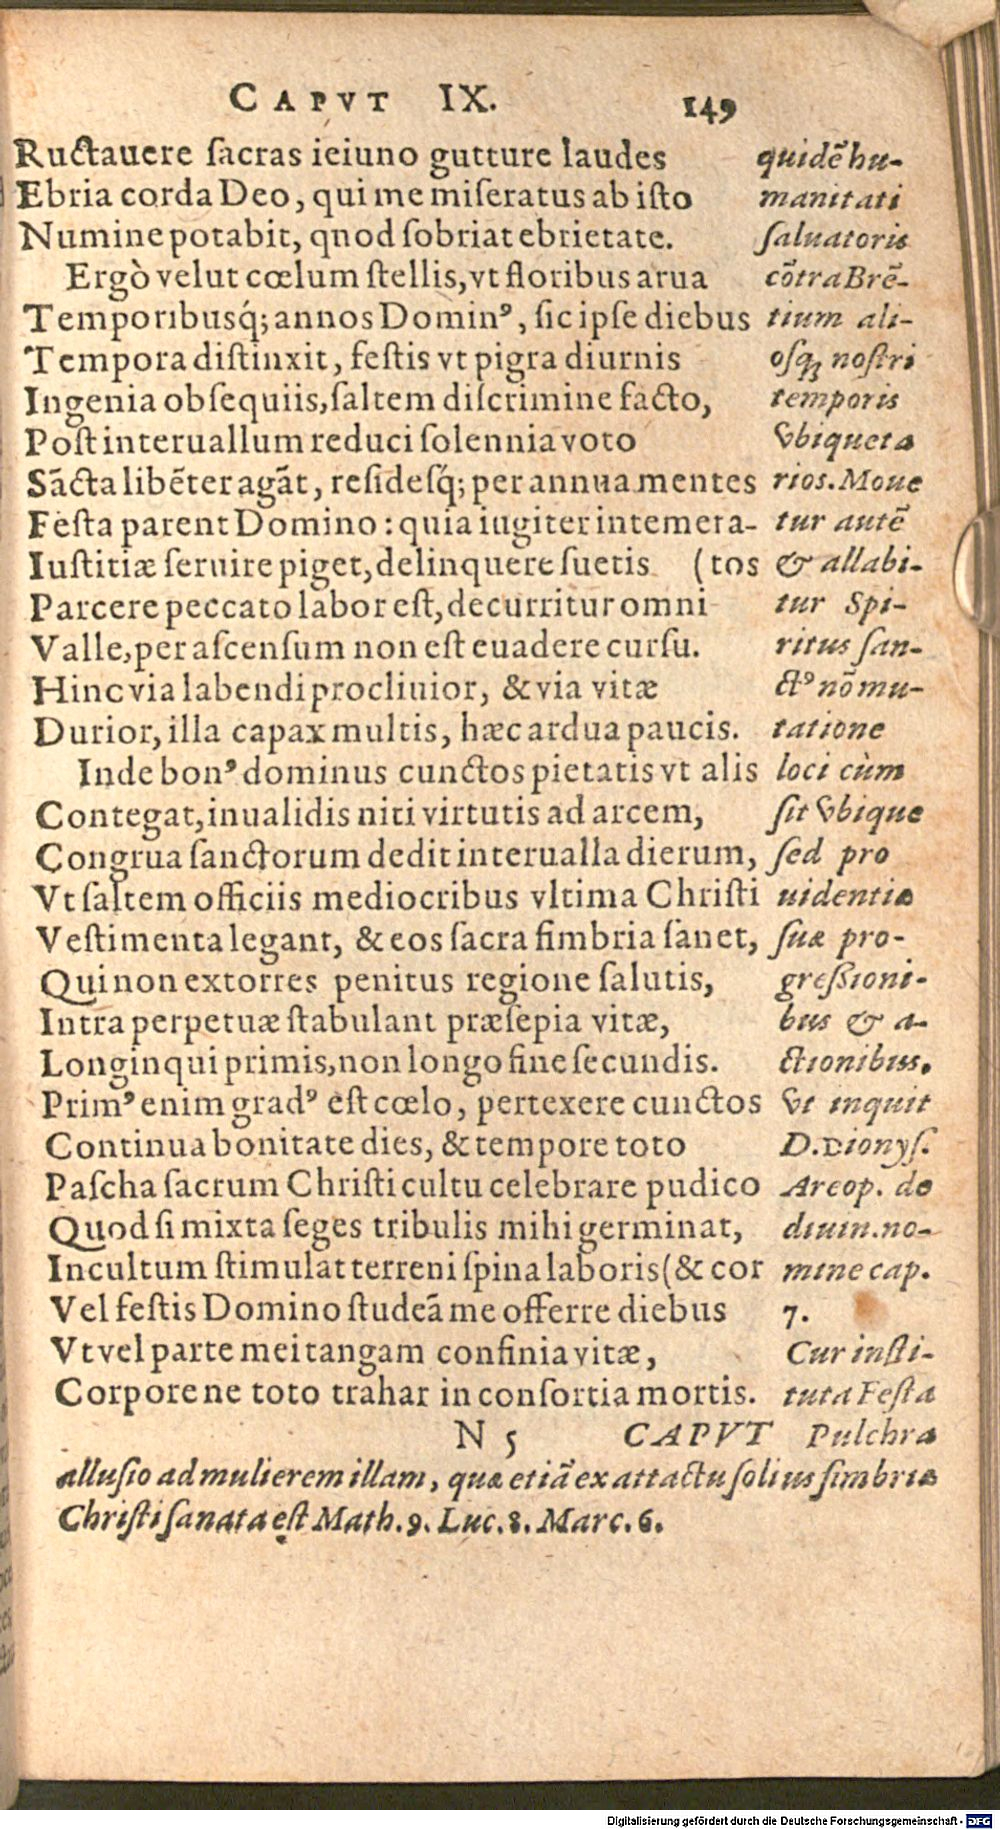 CAPVT IX. 149
Ructauere sacras ieiuno gutture laudes
Ebria corda Deo, qui me miseratus ab isto
Numine potabit, qnod sobriat ebrietate.
Ergò velut cœlum stellis, vt floribus arua
Temporibusq́; annos Dominꝰ, sic ipse diebus
Tempora distinxit, festis vt pigra diurnis
Ingenia obsequiis, saltem discrimine facto,
Post interuallum reduci solennia voto
Sãcta libẽter agãt, residesq́; per annua mentes
Festa parent Domino: quia iugiter intemera-
Iustitiæ seruire piget, delinquere suetis (tos
Parcere peccato labor est, decurritur omni
Valle, per ascensum non est euadere cursu.
Hinc via labendi procliuior, & via vitæ
Durior, illa capax multis, hæc ardua paucis.
Inde bonꝰ dominus cunctos pietatis vt alis
Contegat, inualidis niti virtutis ad arcem,
Congrua sanctorum dedit interualla dierum,
Vt saltem officiis mediocribus vltima Christi
Vestimenta legant, & eos sacra fimbria sanet,
Qui non extorres penitus regione salutis,
Intra perpetuæ stabulant præsepia vitæ,
Longinqui primis, non longo fine secundis.
Primꝰ enim gradꝰ est cœlo, pertexere cunctos
Continua bonitate dies, & tempore toto
Pascha sacrum Christi cultu celebrare pudico
Quod si mixta seges tribulis mihi germinat,
Incultum stimulat terreni spina laboris (& cor
Vel festis Domino studeã me offerre diebus
Vt vel parte mei tangam confinia vitæ,
Corpore ne toto trahar in consortia mortis.
N 5 CAPVT
quidẽ hu-
manitati
saluatoris
cõtra Brẽ-
tium ali-
osq; nostri
temporis
vbiqueta
rios. Moue
tur autẽ
& allabi-
tur Spi-
ritus san-
ctꝰ nõ mu-
tatione
loci cùm
sit vbique
sed pro
uidentiæ
suæ pro-
gressioni-
bus & a-
ctionibus.
vt inquit
D. Dionys.
Areop. de
diuin. no-
mine cap.
7.
Cur insti-
tuta Festa
Pulchra
allusio ad mulierem illam, quæ etiã ex attactu solius fimbriæ
Christi sanata est Math. 9. Luc. 8. Marc. 6.
Digitalisierung gefördert durch die Deutsche Forschungsgemeinschaft - DFG